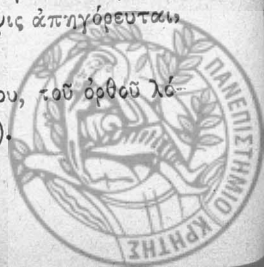 ἀπηγόρευται»
τοῦ ὀρθοῦ λό-
).
ΠΑΝΕΠΙΣΤΗΜΙΟ ΚΡΗΤΗΣ